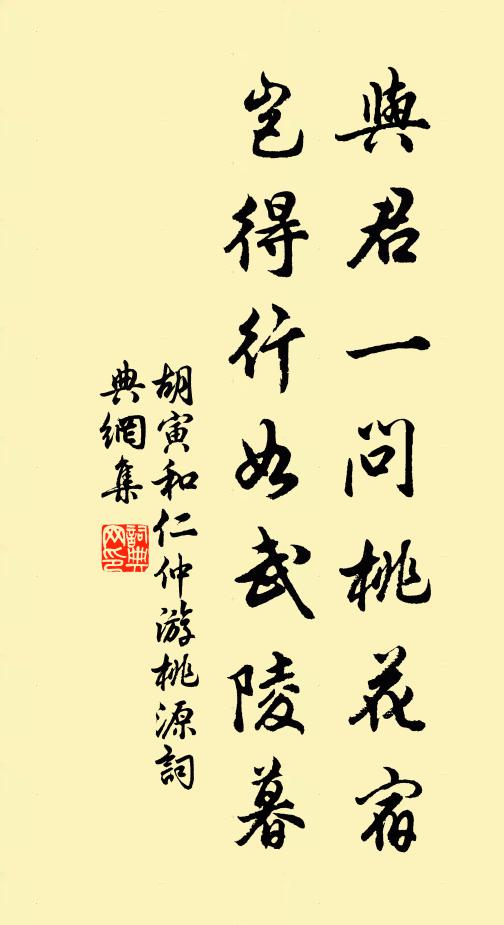 與君一問桃花宿
豈得行如武陵暮
胡寅和仁仲游桃源詞
典網集
詞典
网印